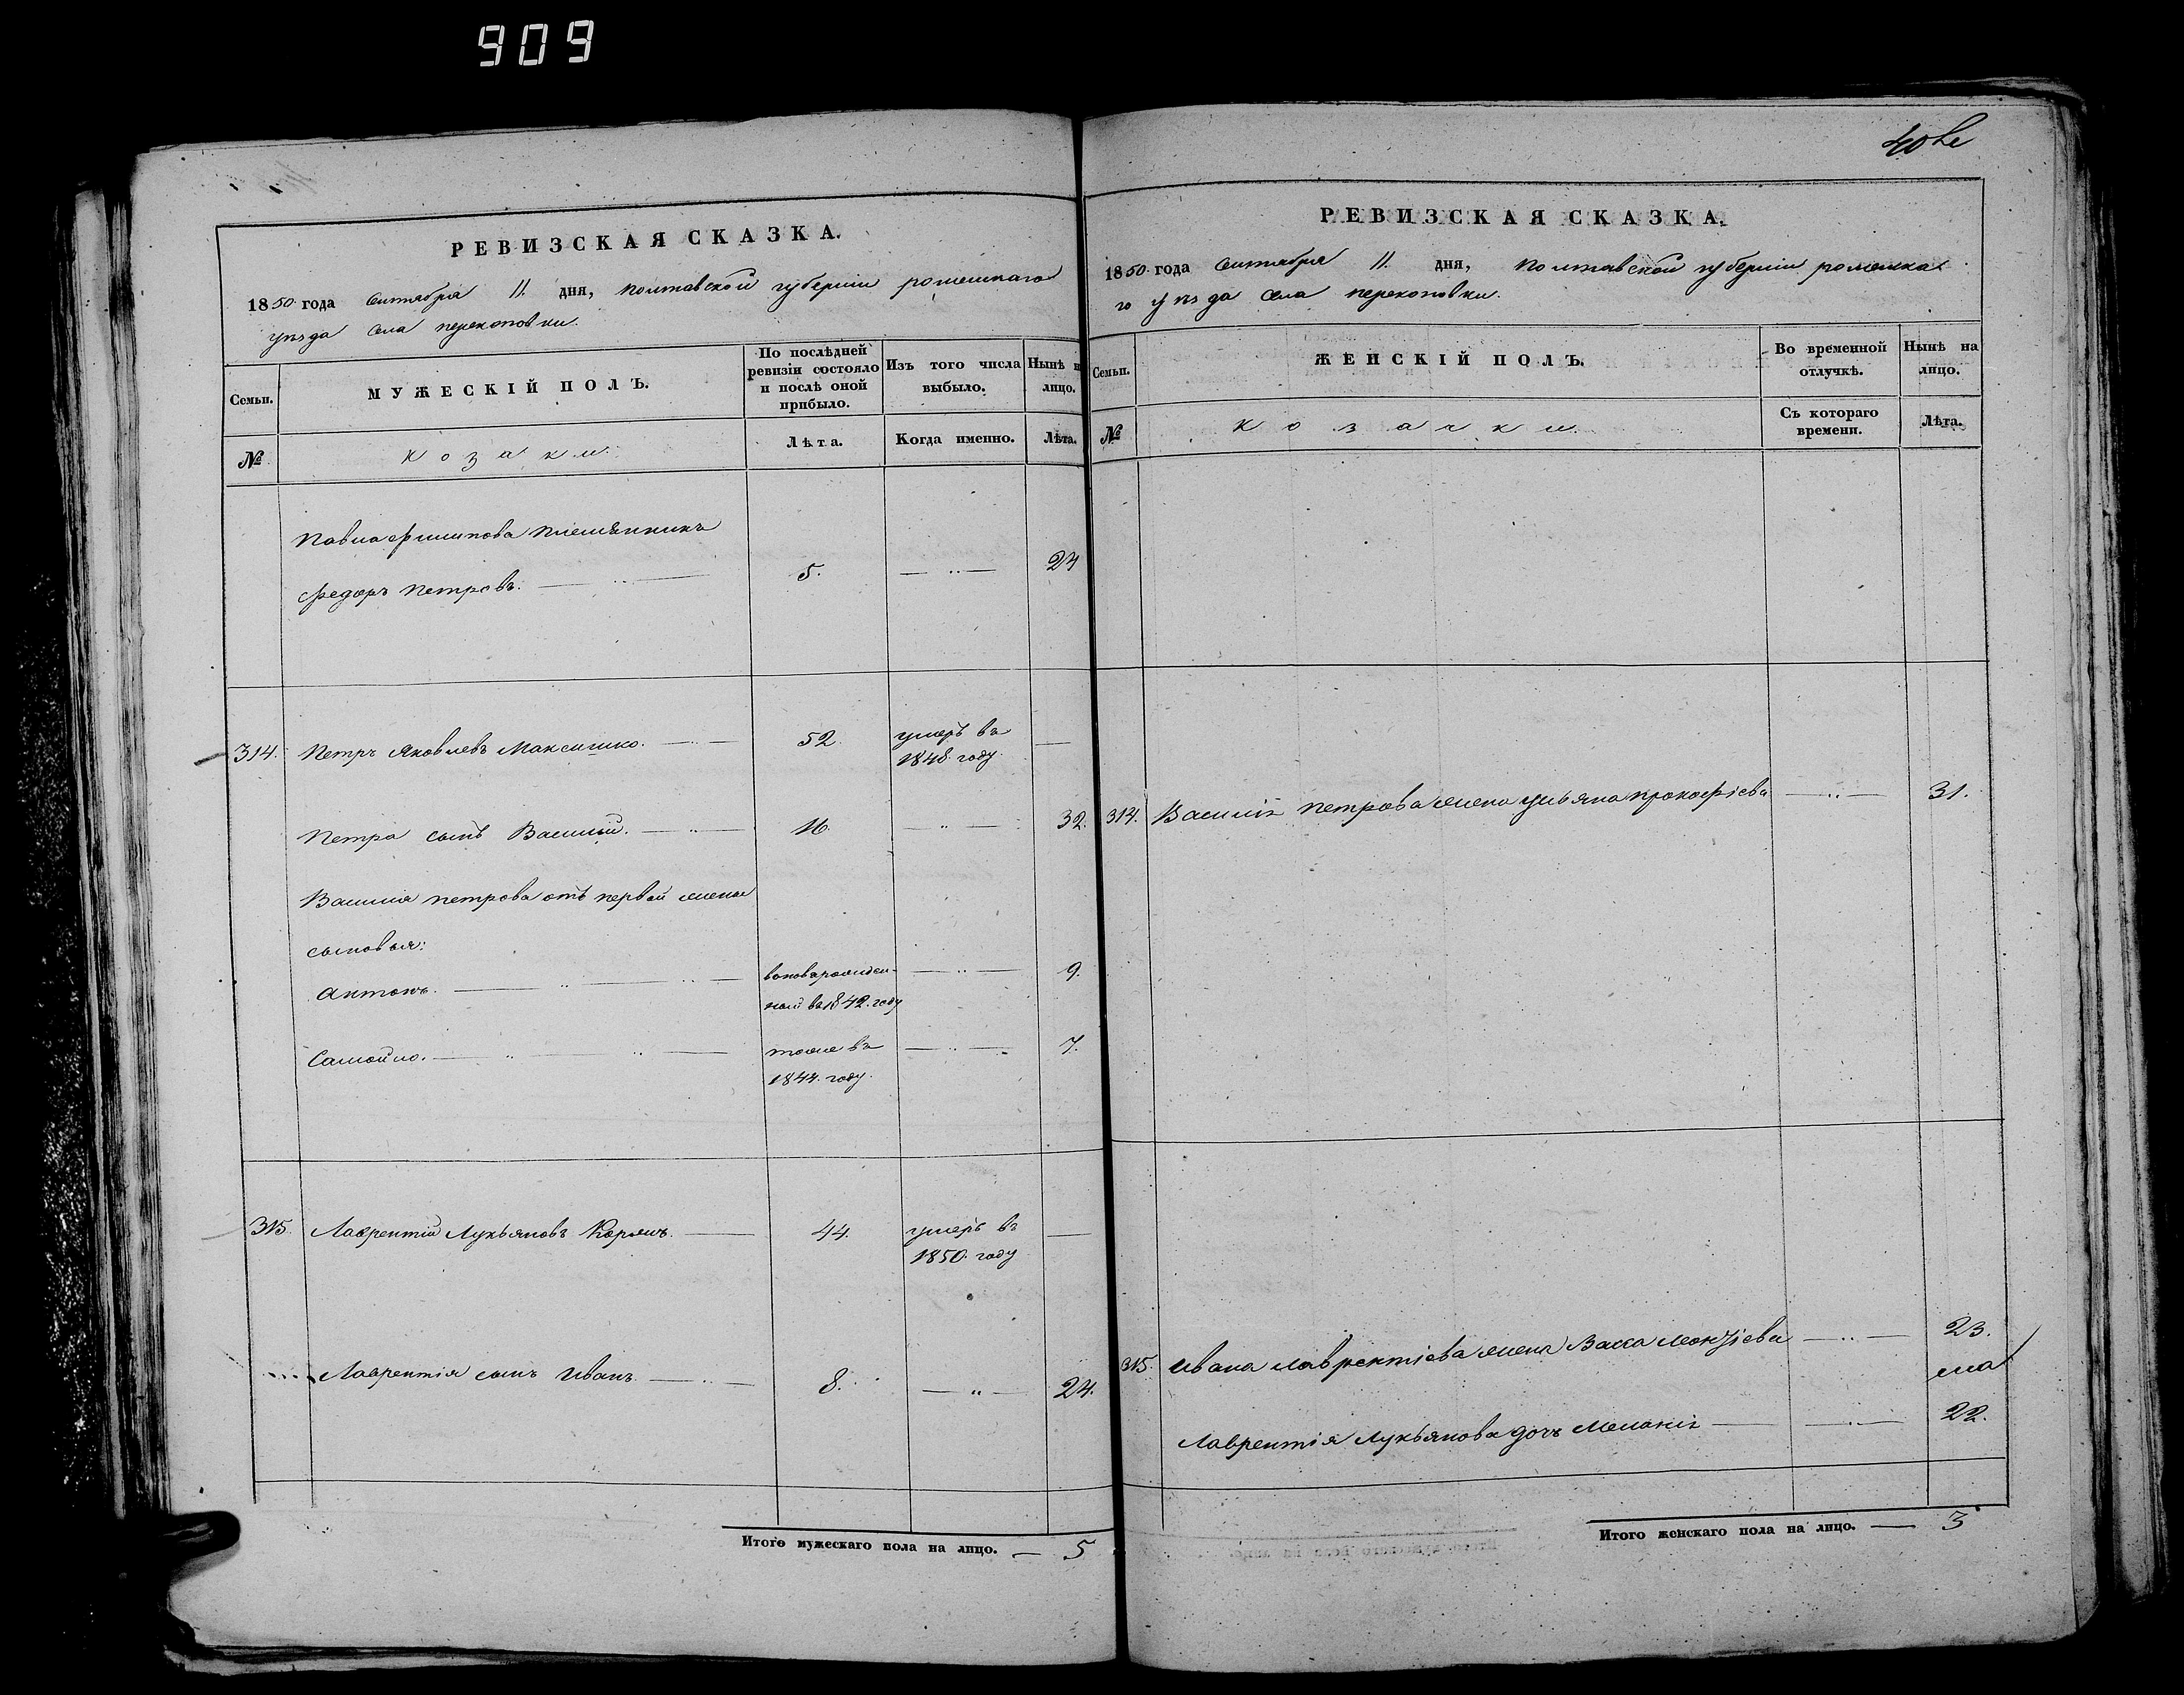 909
РЕВИЗСКАЯ СКАЗКА.
1850 года Сентября 11. дня, полтавской губернии роменскаго
уѣзда села перекоповки.
Семьи.
МУЖЕСКІЙ ПОЛЪ.
По послѣдней
ревизіи состояло
и послѣ оной
прибыло.
Изъ того числа
выбыло.
Нынѣ н
лицо.
№
козаки.
Лѣта.
Когда именно.
Лѣта.
Павла филипова племянникъ
Федоръ Петровъ. 5. 24
314. Петръ Яковлевъ Максимко. 52. умеръ въ
1848 году.
Петра сынъ Василій. 16. 32.
Василія петрова отъ первой жены
сыновья:
Антонъ. новорожден-
ной въ 1842. году 9.
Самойло. тоже въ 7.
1844. году.
315. Лаврентій Лукьяновъ 44. умеръ въ
1850. году
Лаврентія сынъ Иванъ 8. 24.
Итого мужескаго пола на лицо. — 5
РЕВИЗСКАЯ СКАЗКА.
1850 года Сентября 11. дня, полтавской губерніи роменска
го уѣзда села перекоповки.
Семьи.
ЖЕНСКІЙ ПОЛЪ.
Во временной
отлучкѣ.
Нынѣ на
лицо.
№
козачки.
Съ котораго
времени.
Лѣта.
314. Василія петрова жена ульяна прокофіева 31.
315. Ивана лаврентіева жена Васса 23.
Лаврентія Лукьянова дочь Меланія 22.
Итого женскаго пола на лицо. — 3